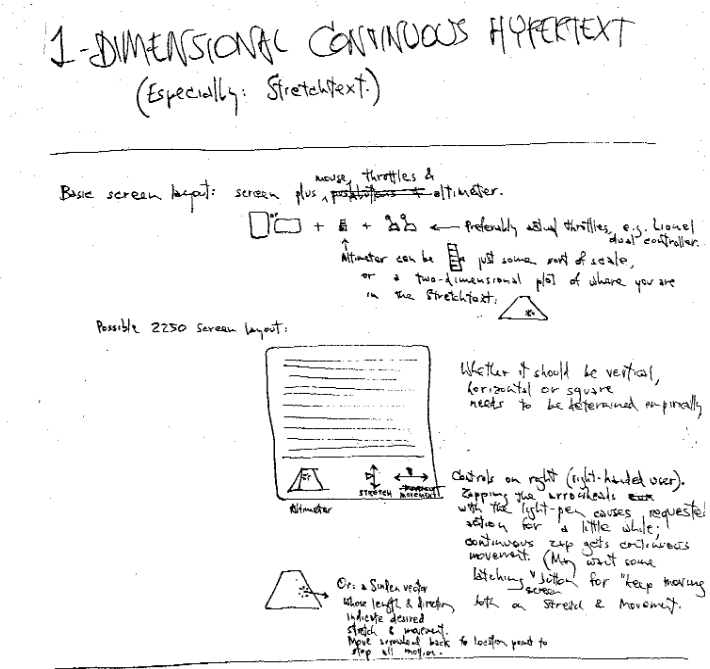 1-DIMENSIONAL CONTINUOUS HYPERTEXT
(Especially: Stretchtext.)
mouse, throttles &
Basic screen layout: screen plus pushbuttons + altimeter.
+ + ← Preferably actual throttles, e.g. Lionel
dual controller.
Altimeter can be just some sort of scale,
or a two-dimensional plot of where you are
in the Stretchtext:
Possible 2250 screen layout:
Whether it should be vertical,
horizontal or square
needs to be determined empirically
STRETCH MOVEMENT
Altimeter
Controls on right (right-handed user).
Zapping the arrowheads
with the light-pen causes requested
action for a little while;
continuous zap gets continuous
movement. (May want some
latching screen button for "keep moving
both on Stretch & Movement.
Or: a Sinden vector
whose length & direction
indicate desired
stretch & movement.
Move arrowhead back to location point to
stop all motion.